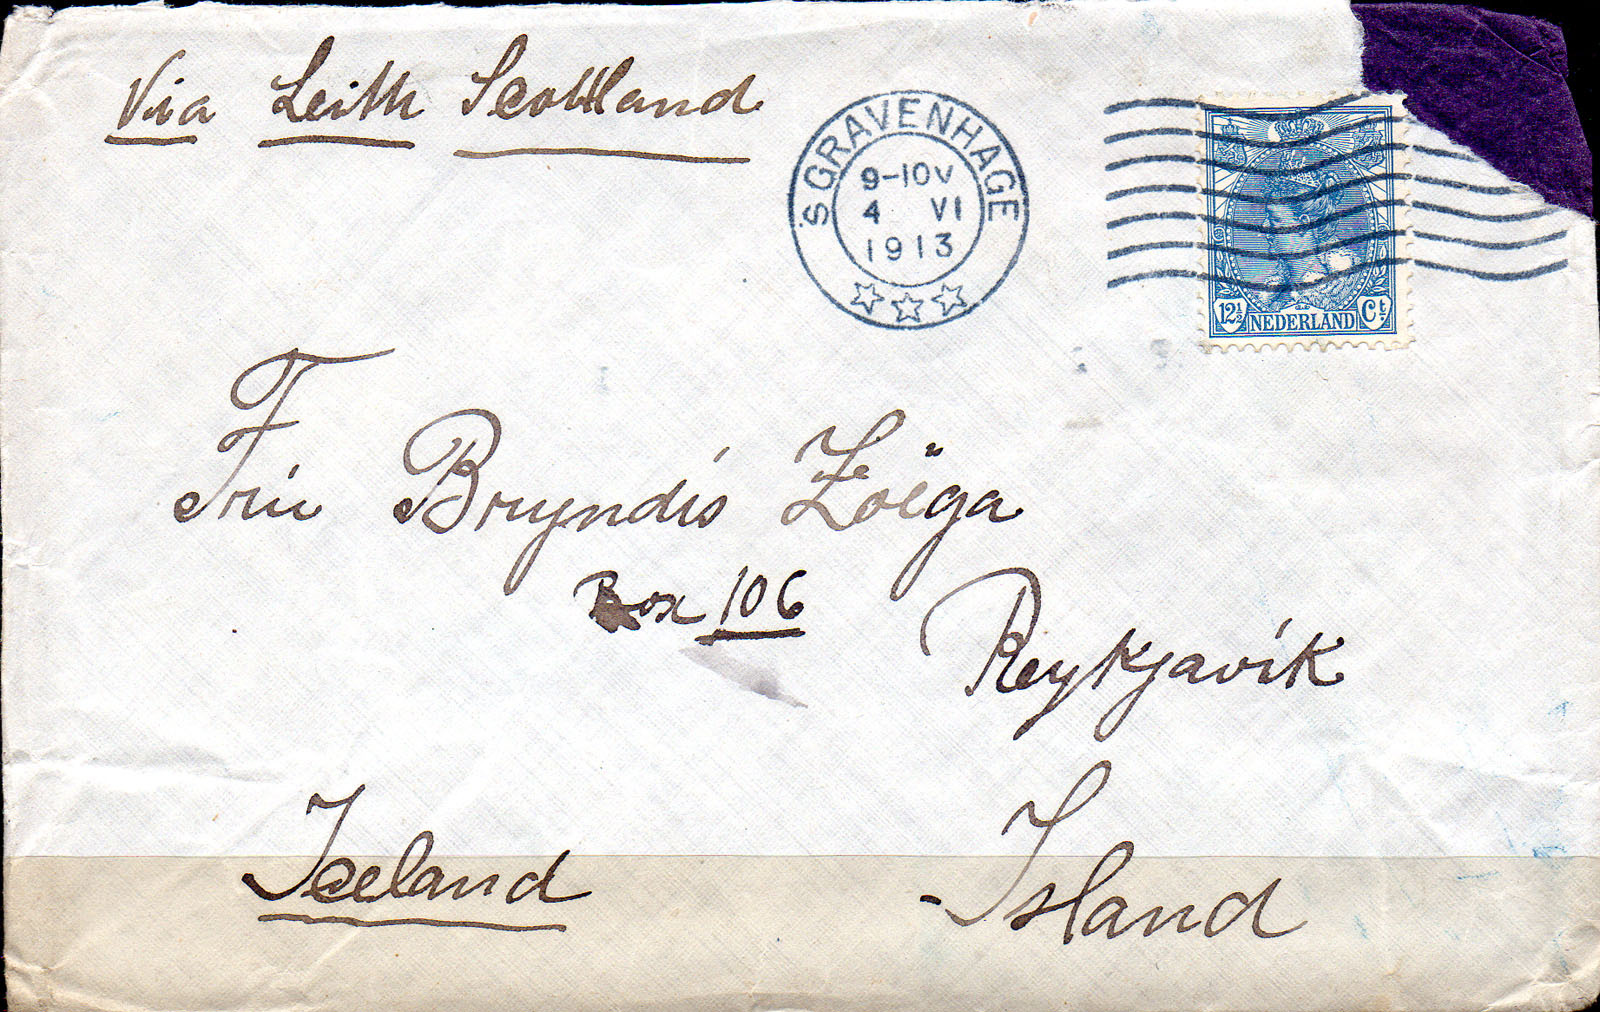 Via Leith Scottland
'SGRAVENHAGE
9-10V
4 VI
1913
12½ NEDERLAND Ct.
Frú Bryndís Zoëga
Box 106
Reykjavík
Iceland
Island